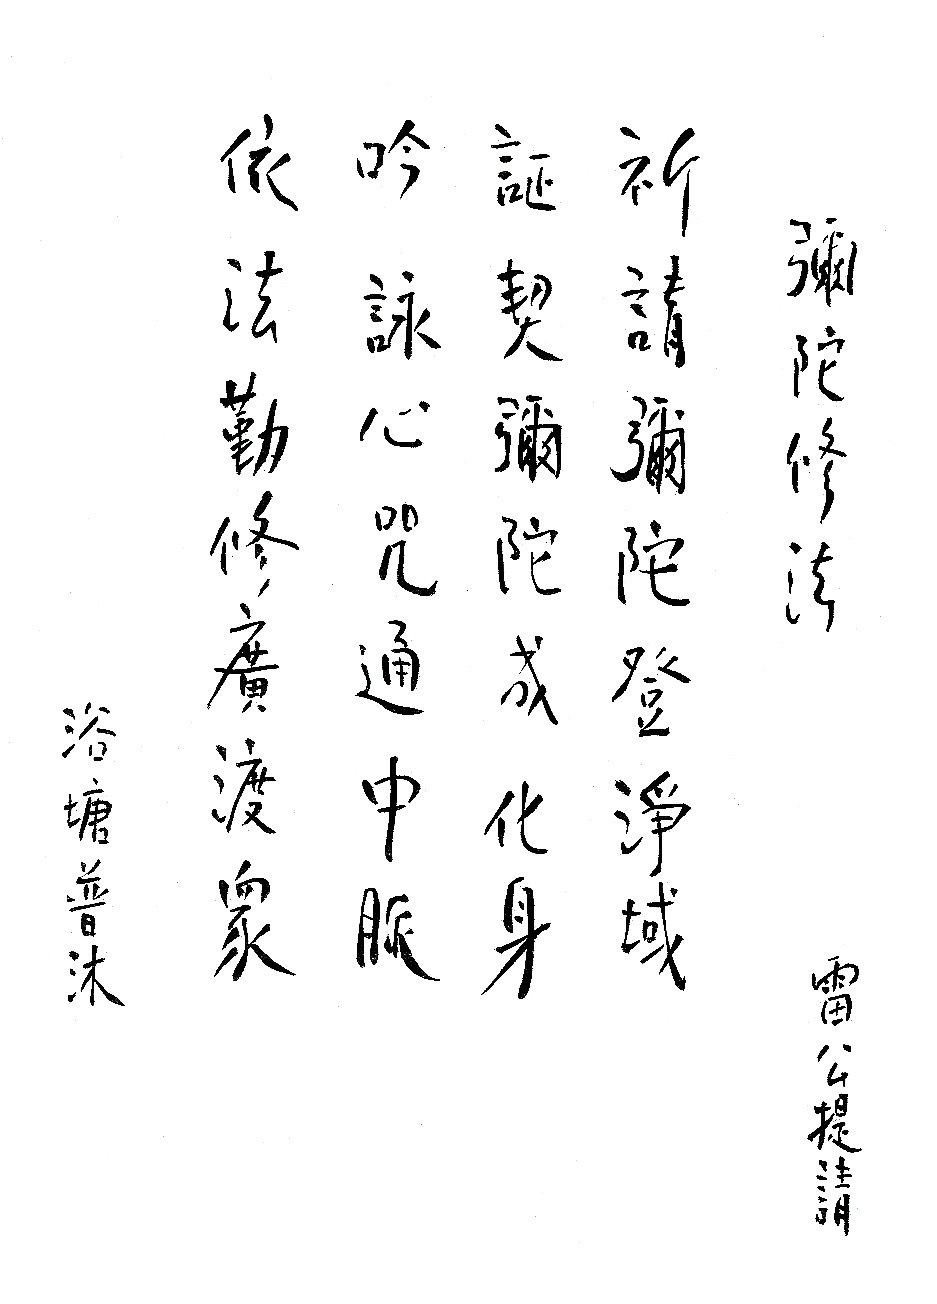 彌陀修法
雷公提請
祈請彌陀登淨域
証契彌陀成化身
吟詠心咒通中脈
依法勤修廣渡眾
浴塘普沐